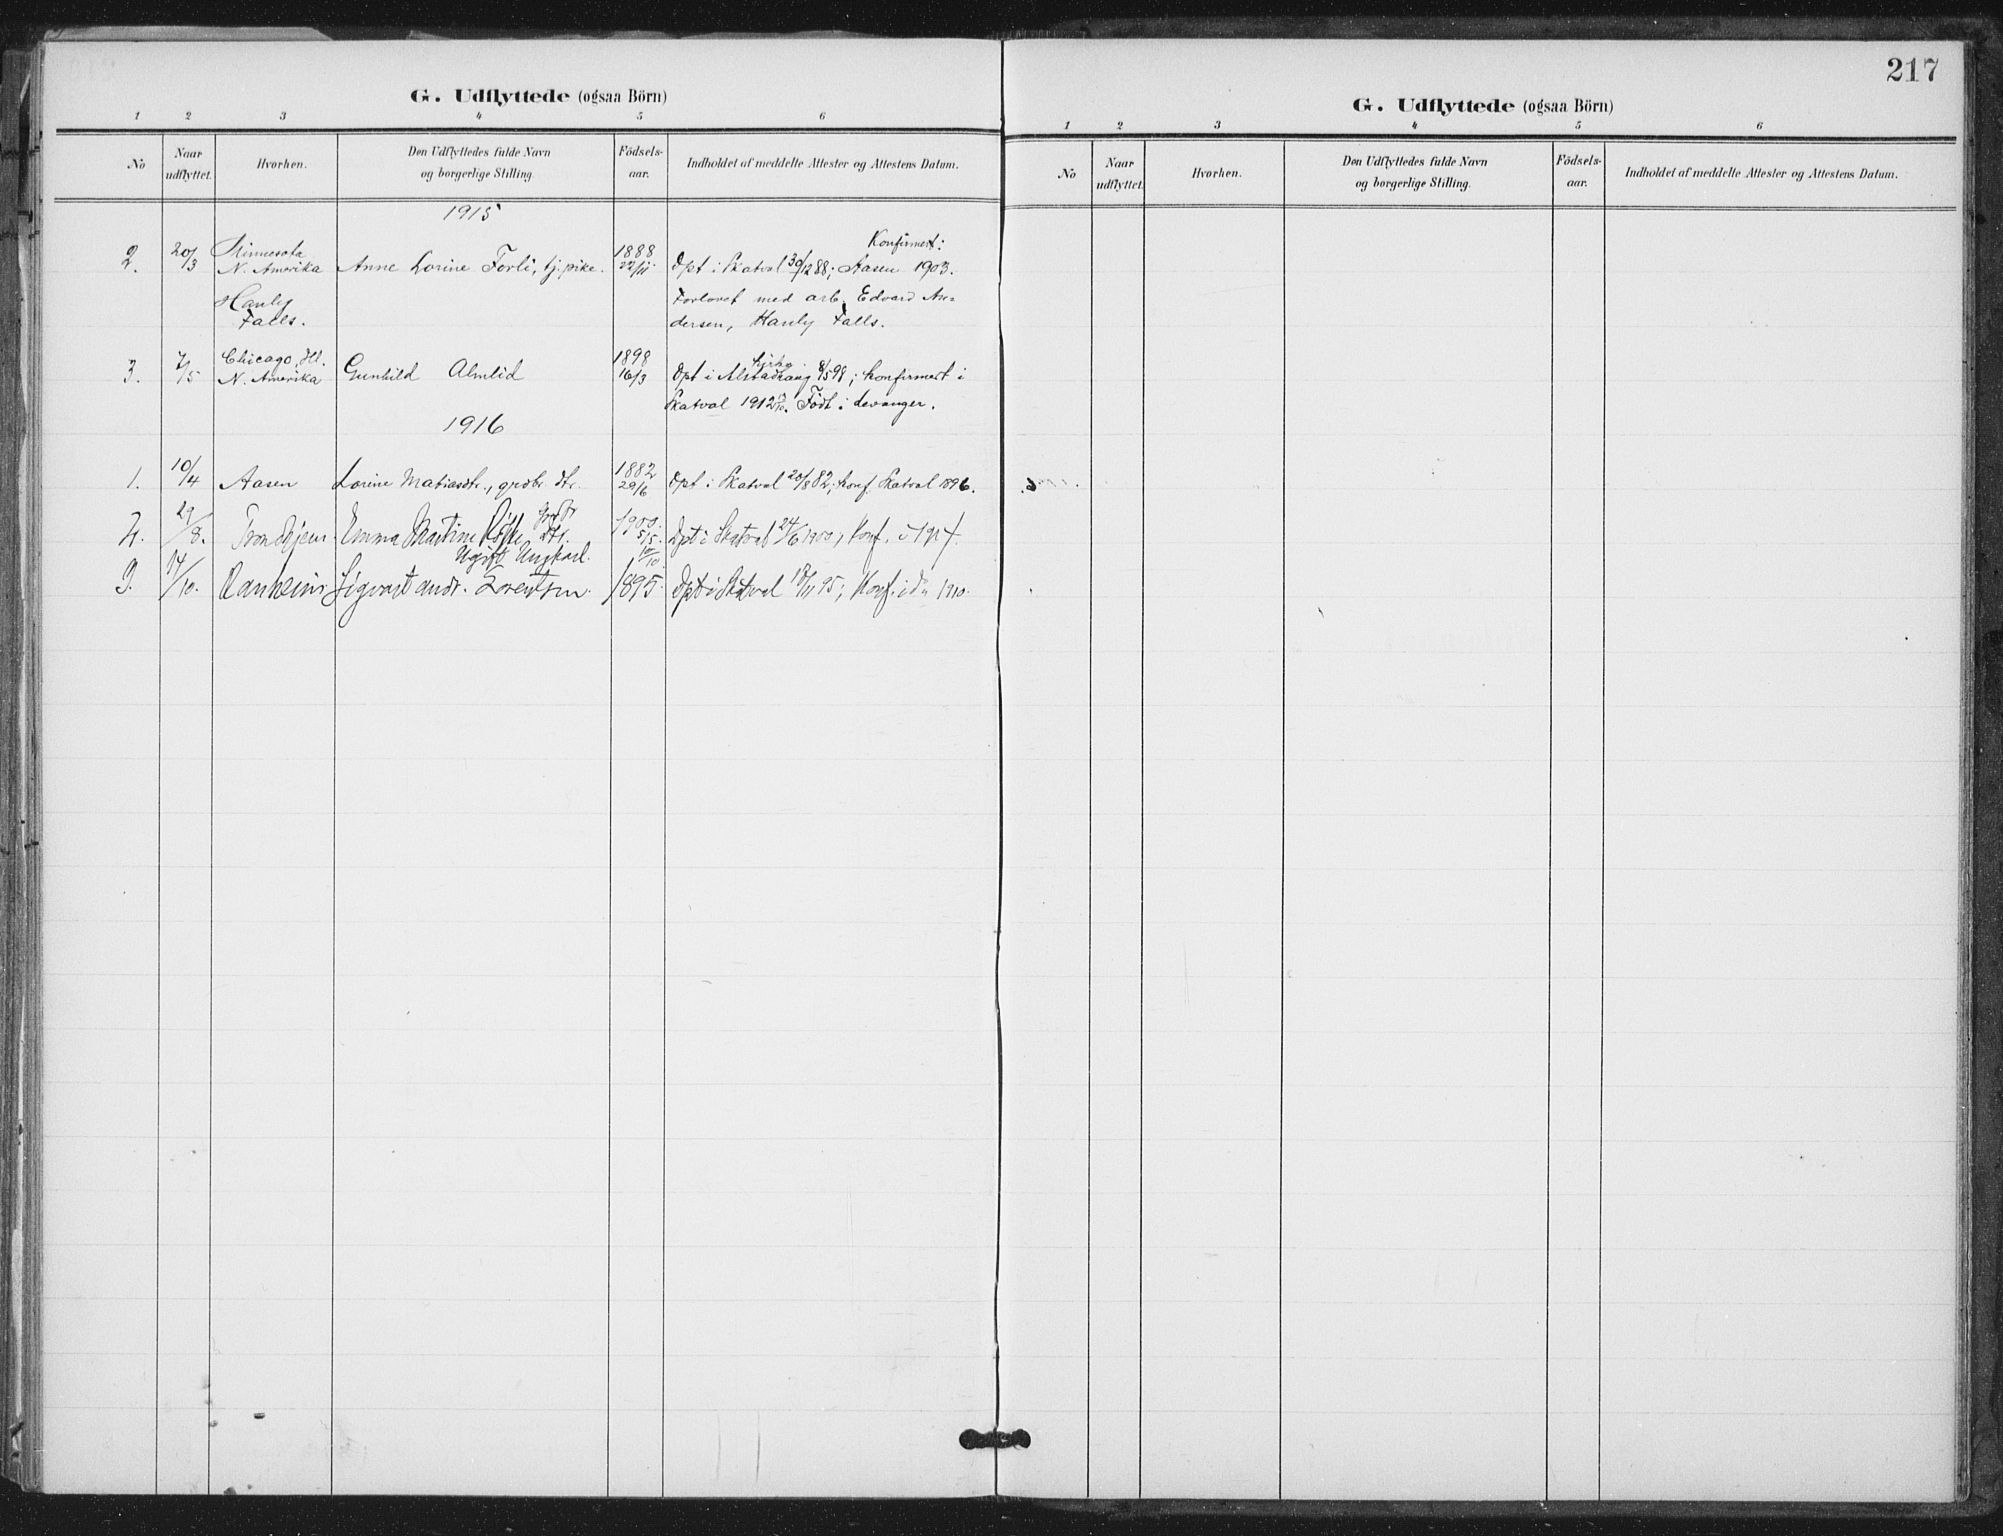 G. Udflyttede (ogsaa Börn)
1 2 3 4 5 6
No Naar udflyttet. Hvorhen. Den Udflyttedes fulde Navn og borgerlige Stilling. Födsels-aar. Indholdet af meddelte Attester og Attestens Datum.
1915
Konfirmert:
2. 20/3 Minnesota N. Amerika Anne Lorine Forli, tj. pike. 1888 22/11 Dpt i Skatval 30/12 88; Aasen 1903.
Hanly Forlovet med arb. Edvard An-
Falls. dersen, Hanly Falls.
3. 7/5 Chicago, Ill. N. Amerika Gunhild Almlid 1898 16/3 Dpt i Alstadhaug kirke 8/5 98; konfirmert i
Skatval 1912. Födt i Levanger.
1916
1. 10/4 Aasen Lorine Matiasdtr., grdbr. dtr. 1882 29/6 Dpt i Skatval 20/8 82; konf. Skatval 1896.
2. 29/8. Trondhjem Emma Martine dtr. 1900. 5/5. Dpt i Skatval 24/6 1900, Konf.
Ugift Ungkarl. 10/10
3. 14/10. Ranheim Sigvart Andr. Lorentsen. 1895. Dpt i Skatval 95; Konf. i do 1910.
217
G. Udflyttede (ogsaa Börn)
1 2 3 4 5 6
No Naar udflyttet. Hvorhen. Den Udflyttedes fulde Navn og borgerlige Stilling. Födsels-aar. Indholdet af meddelte Attester og Attestens Datum.